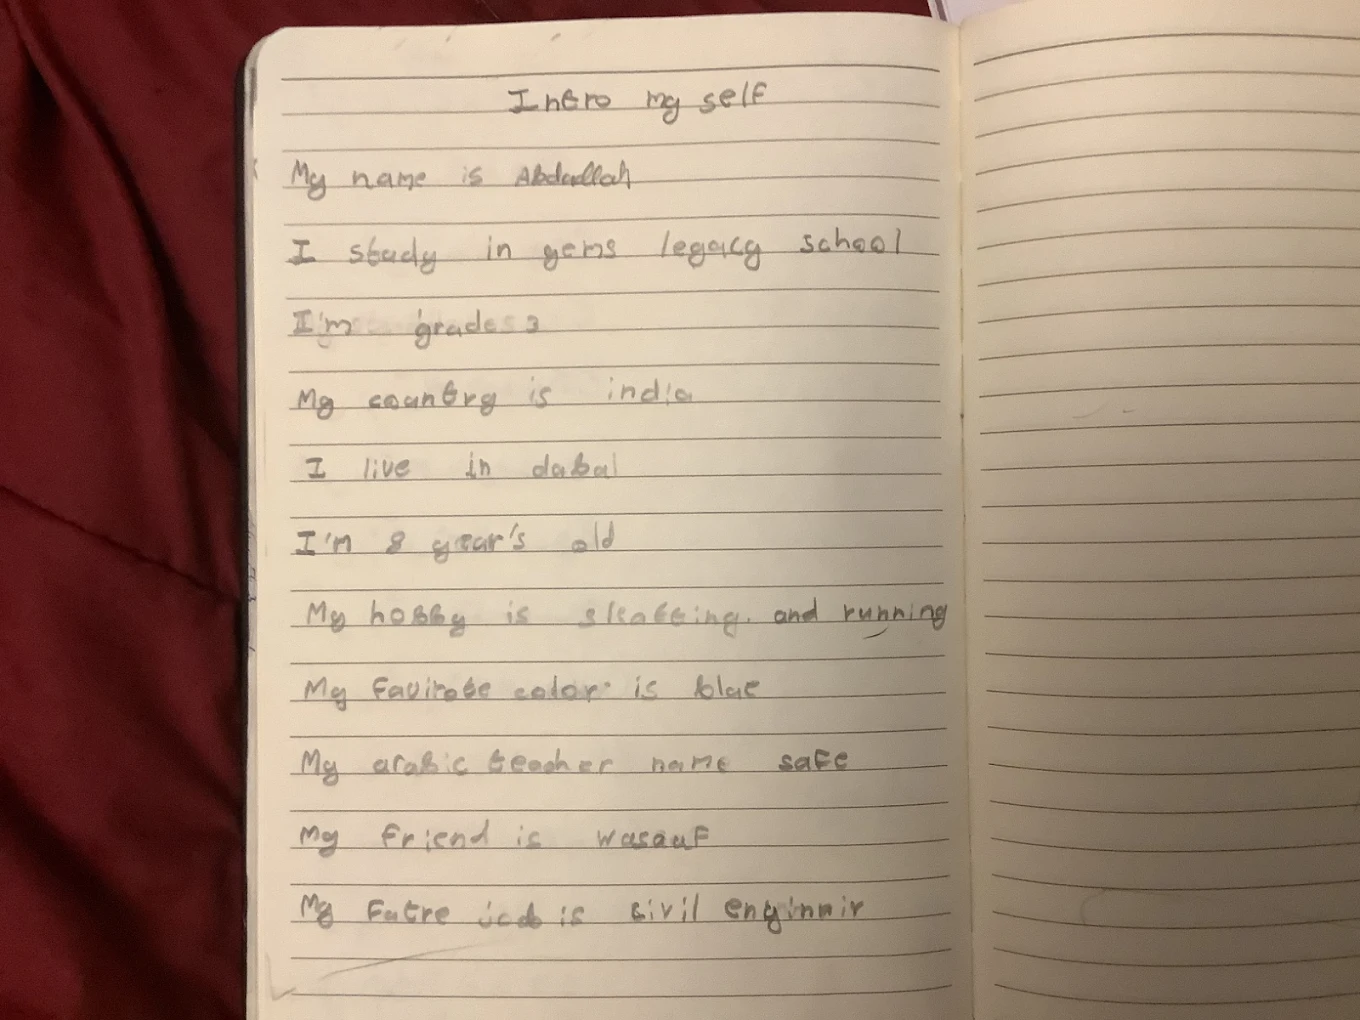 Intro my self
My name is Abdallah
I study in gems legacy school
I'm grade 3
My country is india
I live in dabal
I'm 8 year's old
My hobby is skatting. and running
My favirote color is blue
My arabic teacher name safe
My friend is wasauf
My fatre job is sivil enginnir